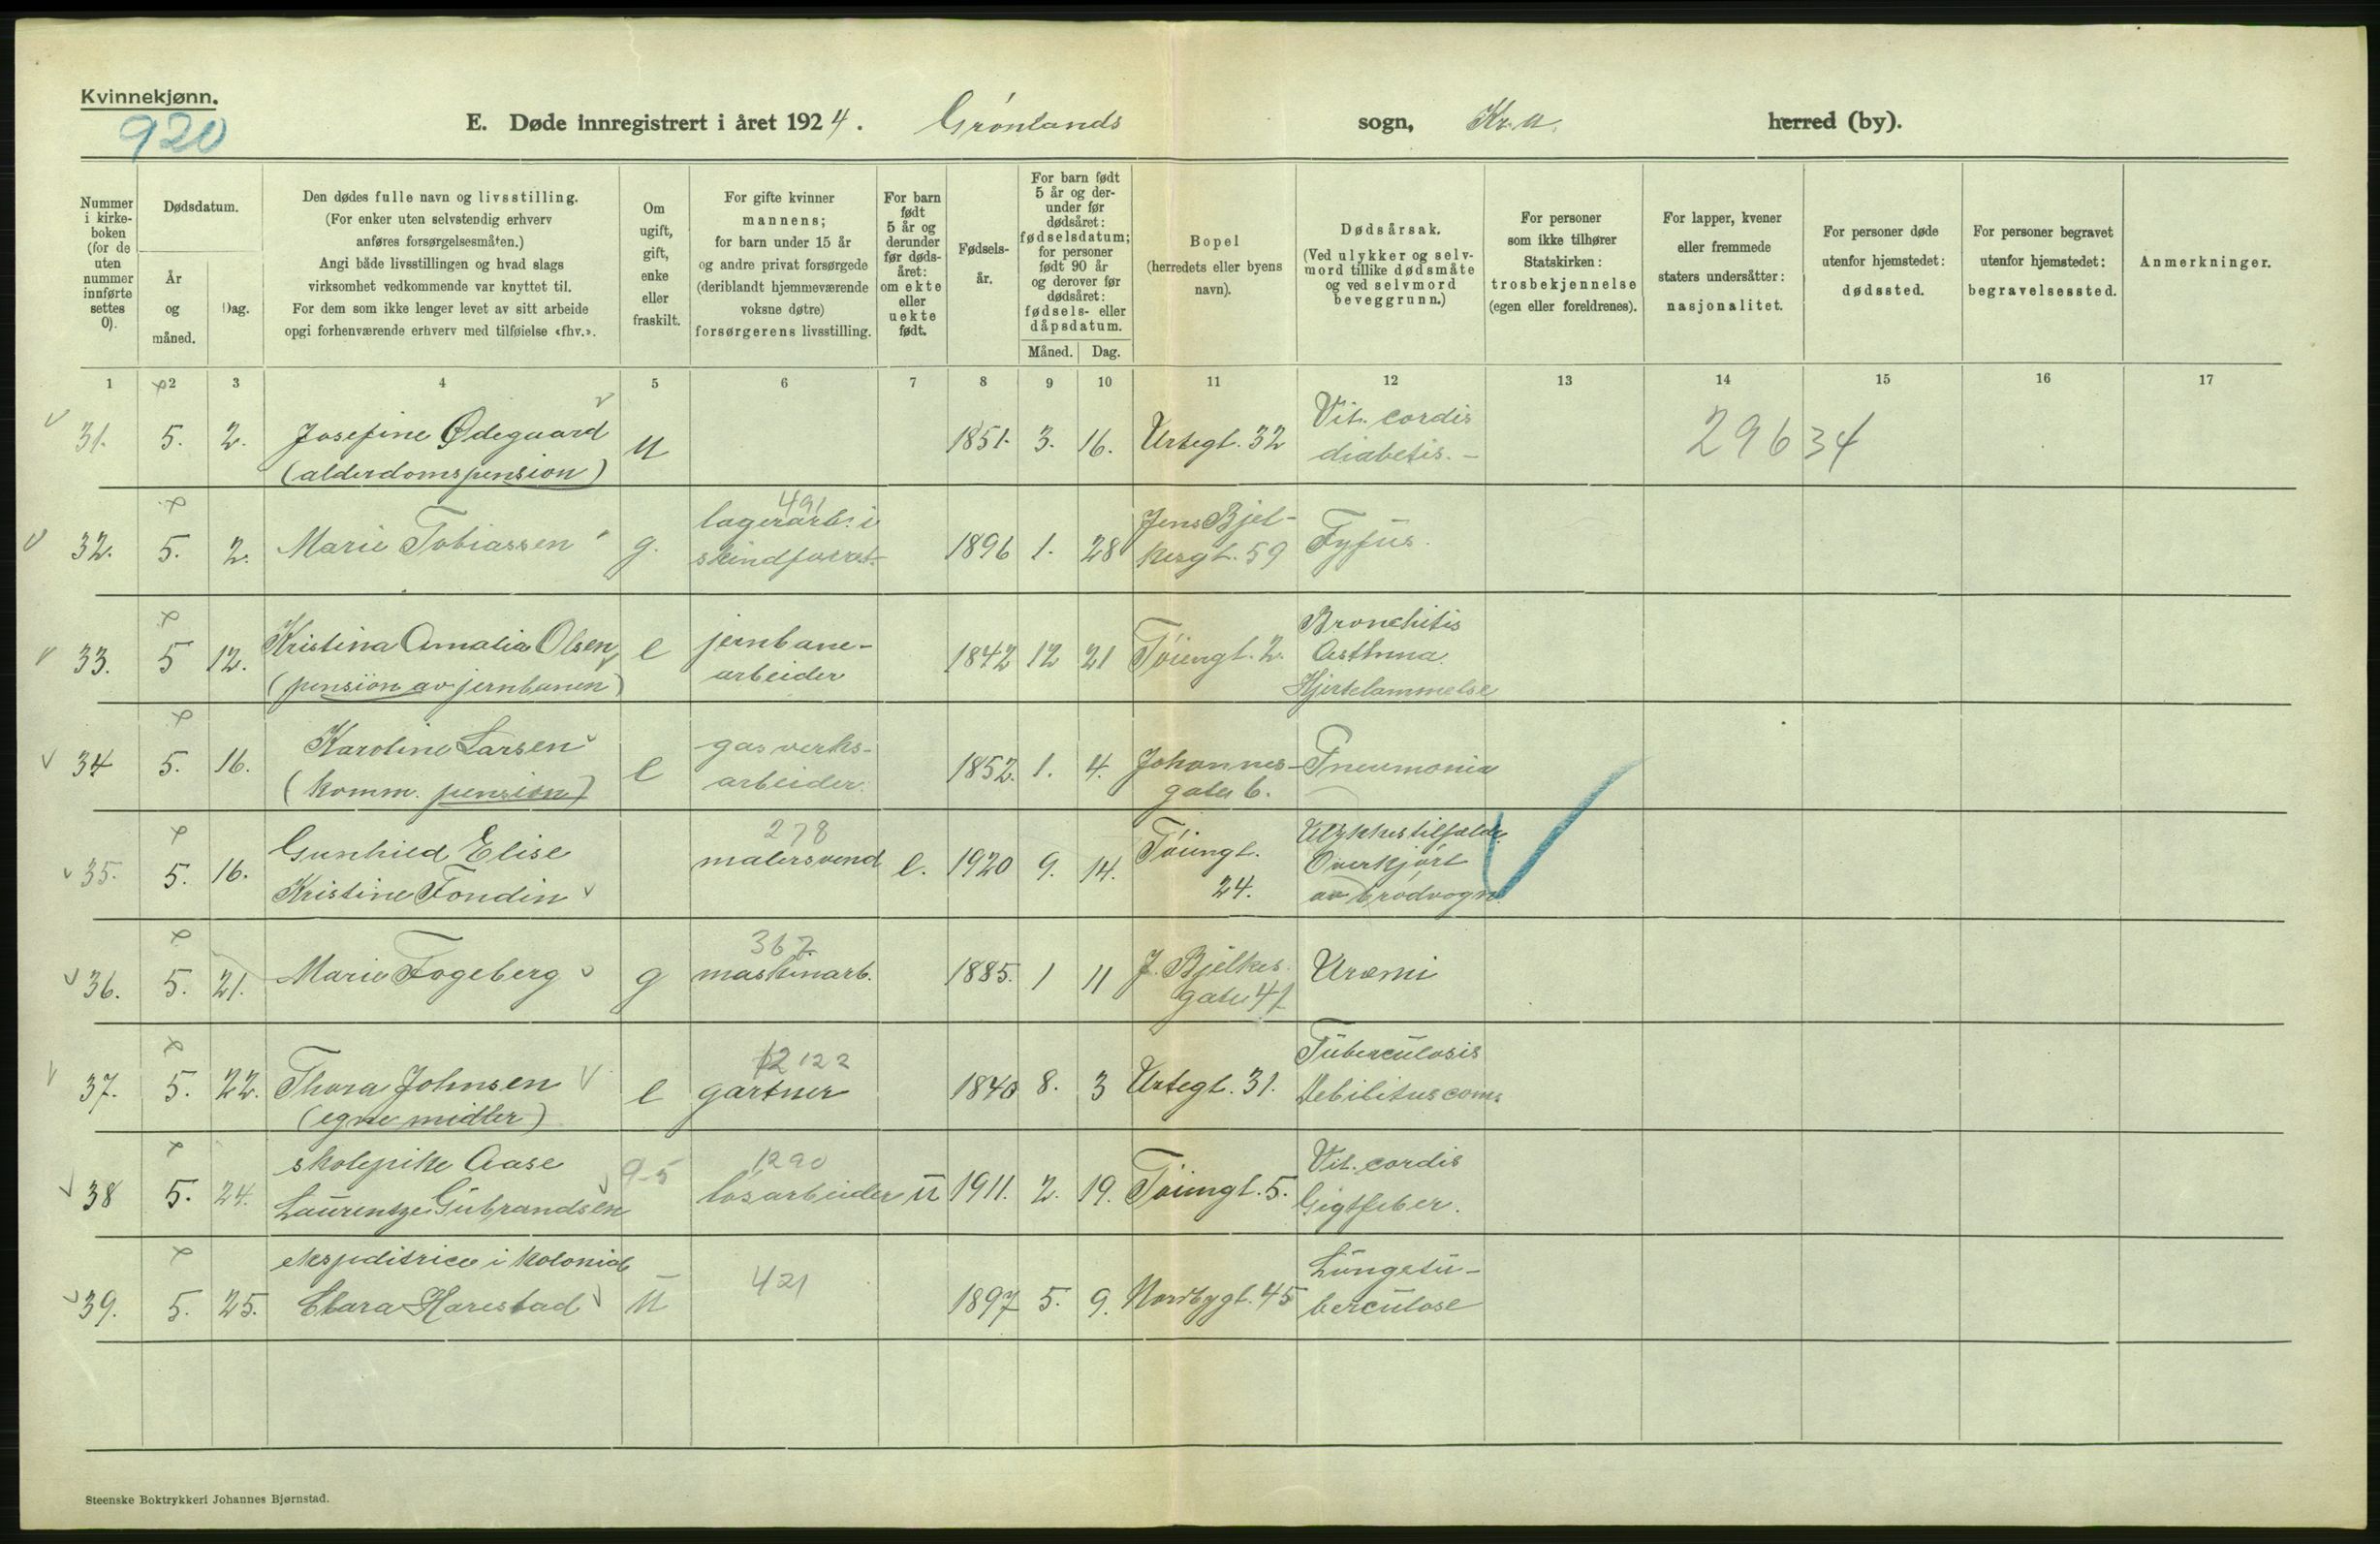 Kvinnekjønn.
920
E. Døde innregistrert i året 1924. Grønlands sogn, Kr.a. herred (by).
Nummer i kirke-boken (for de uten nummer innførte settes 0).
Dødsdatum.
År og måned.
Dag.
Den dødes fulle navn og livsstilling.
(For enker uten selvstendig erhverv
anføres forsørgelsesmåten.)
Angi både livsstillingen og hvad slags
virksomhet vedkommende var knyttet til.
For dem som ikke lenger levet av sitt arbeide
opgi forhenværende erhverv med tilføielse «fhv.».
Om ugift, gift, enke eller fraskilt.
For gifte kvinner
mannens;
for barn under 15 år
og andre privat forsørgede
(deriblandt hjemmeværende
voksne døtre)
forsørgerens livsstilling.
For barn født 5 år og derunder før døds-året: om ekte eller uekte født.
Fødsels-år.
For barn født 5 år og der-under før dødsåret: fødselsdatum; for personer født 90 år og derover før dødsåret: fødsels- eller dåpsdatum.
Måned.
Dag.
Bopel
(herredets eller byens
navn).
Dødsårsak.
(Ved ulykker og selv-
mord tillike dødsmåte
og ved selvmord
beveggrunn.)
For personer
som ikke tilhører
Statskirken:
trosbekjennelse
(egen eller foreldrenes).
For lapper, kvener
eller fremmede
staters undersåtter:
nasjonalitet.
For personer døde
utenfor hjemstedet:
dødssted.
For personer begravet
utenfor hjemstedet:
begravelsessted.
Anmerkninger.
1 2 3 4 5 6 7 8 9 10 11 12 13 14 15 16 17
31. 5. 2. Josefine Ødegaard u 1851. 3. 16. Urtegt. 32 Vit. cordis
(alderdomspension) diabetis. - 29634
491
32. 5. 2. Marie Tobiassen g. lagerarb. i 1896 1. 28 Jens Bjel-
kesgt. 59 Tyfus.
33. 5 12. Kristina Amalia Olsen e jernbane- 1842 12 21 Töiengt. 2. Bronchitis
(pension av jernbanen) arbeider Asthma.
Hjertelammelse
34 5. 16. Karoline Larsen e gasverks- 1852. 1. 4. Johannes- Pneumonia
(komm. pension) arbeider. gaten 6.
278
35. 5. 16. Gunhild Elise malersvend e. 1920 9. 14. Töiengt. Ulykkestilfælde.
Kristine Fondin 24. Overkjört
av brödvogn.
367
36. 5. 21. Marie Fogeberg g maskinarb. 1885. 1 11 J. Bjelkes. Uræmi
gate 41
122
37. 5. 22. Thora Johnsen e gartner 1840 8. 3 Urtegt. 31. Tuberculosis
(egne midler)
1290
38 5. 24. skolepike Aase 9-5 lösarbeider u 1911. 2. 19. Töiengt. 5. Vit. cordis
Laurentze Gubrandsen Gigtfeber.
421
39. 5. 25. ekspeditrice i kolonial
Clara Harestad u 1897 5. 9. Norbygt. 45 Lungetu-
berculose
Steenske Boktrykkeri Johannes Bjørnstad.